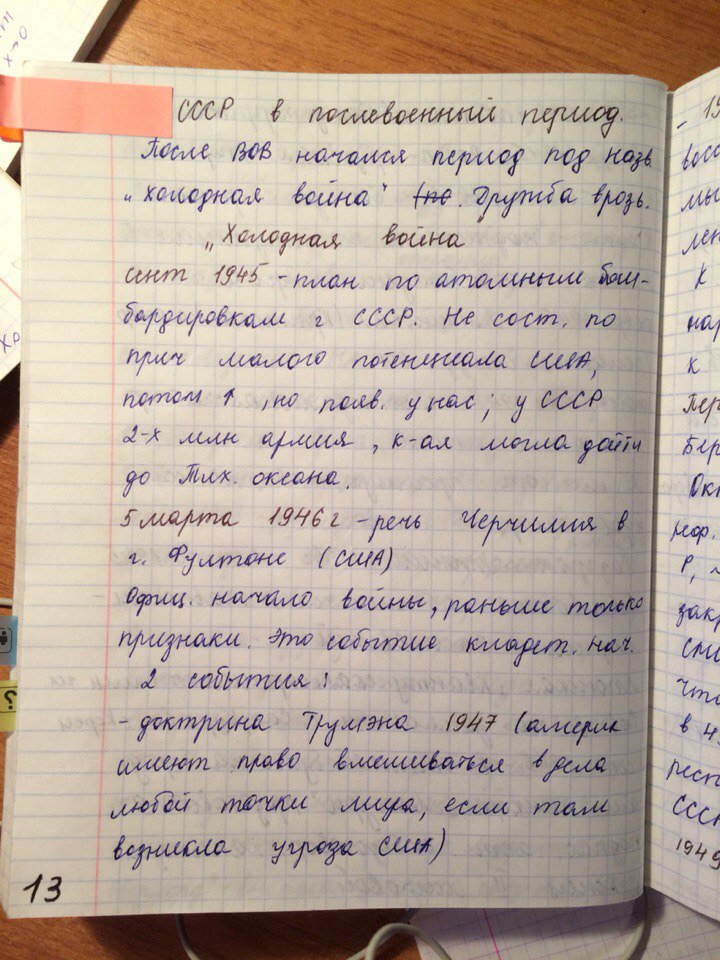 СССР в послевоенный период.
После ВОВ начался период под назв.
„Холодная война" Дружба врозь.
„Холодная война
сент 1945 - план по атомным бом-
бардировкам г СССР. Не сост. по
прич малого потенциала США,
потом ↑, но появ. у нас; у СССР
2-х млн армия, к-ая могла дойти
до Тих. океана.
5 марта 1946 г - речь Черчилля в
г. Фултоне (США)
Офиц. начало войны, раньше только
признаки. Это событие кладет. нач.
2 события:
- доктрина Трумэна 1947 (америк
имеют право вмешиваться в дела
любой точки мира, если там
возникла угроза США)
13
восс
мы
лен
к
нар
к
Пер
Бер
Окт
реф.
Р,
закр
сми
что
в 4
респ
СССР
1949